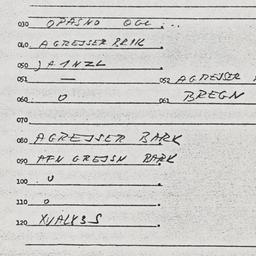 030 OPASNO OGL ...
040 AGREJSER BRIK
050 JA1NZL
051 — 052 AGREJSER
060 0 061 BREGN
070
080 AGREJSER BARK
090 AFN GREJSN BARK
100 . U
110 0
120 XVALKBS